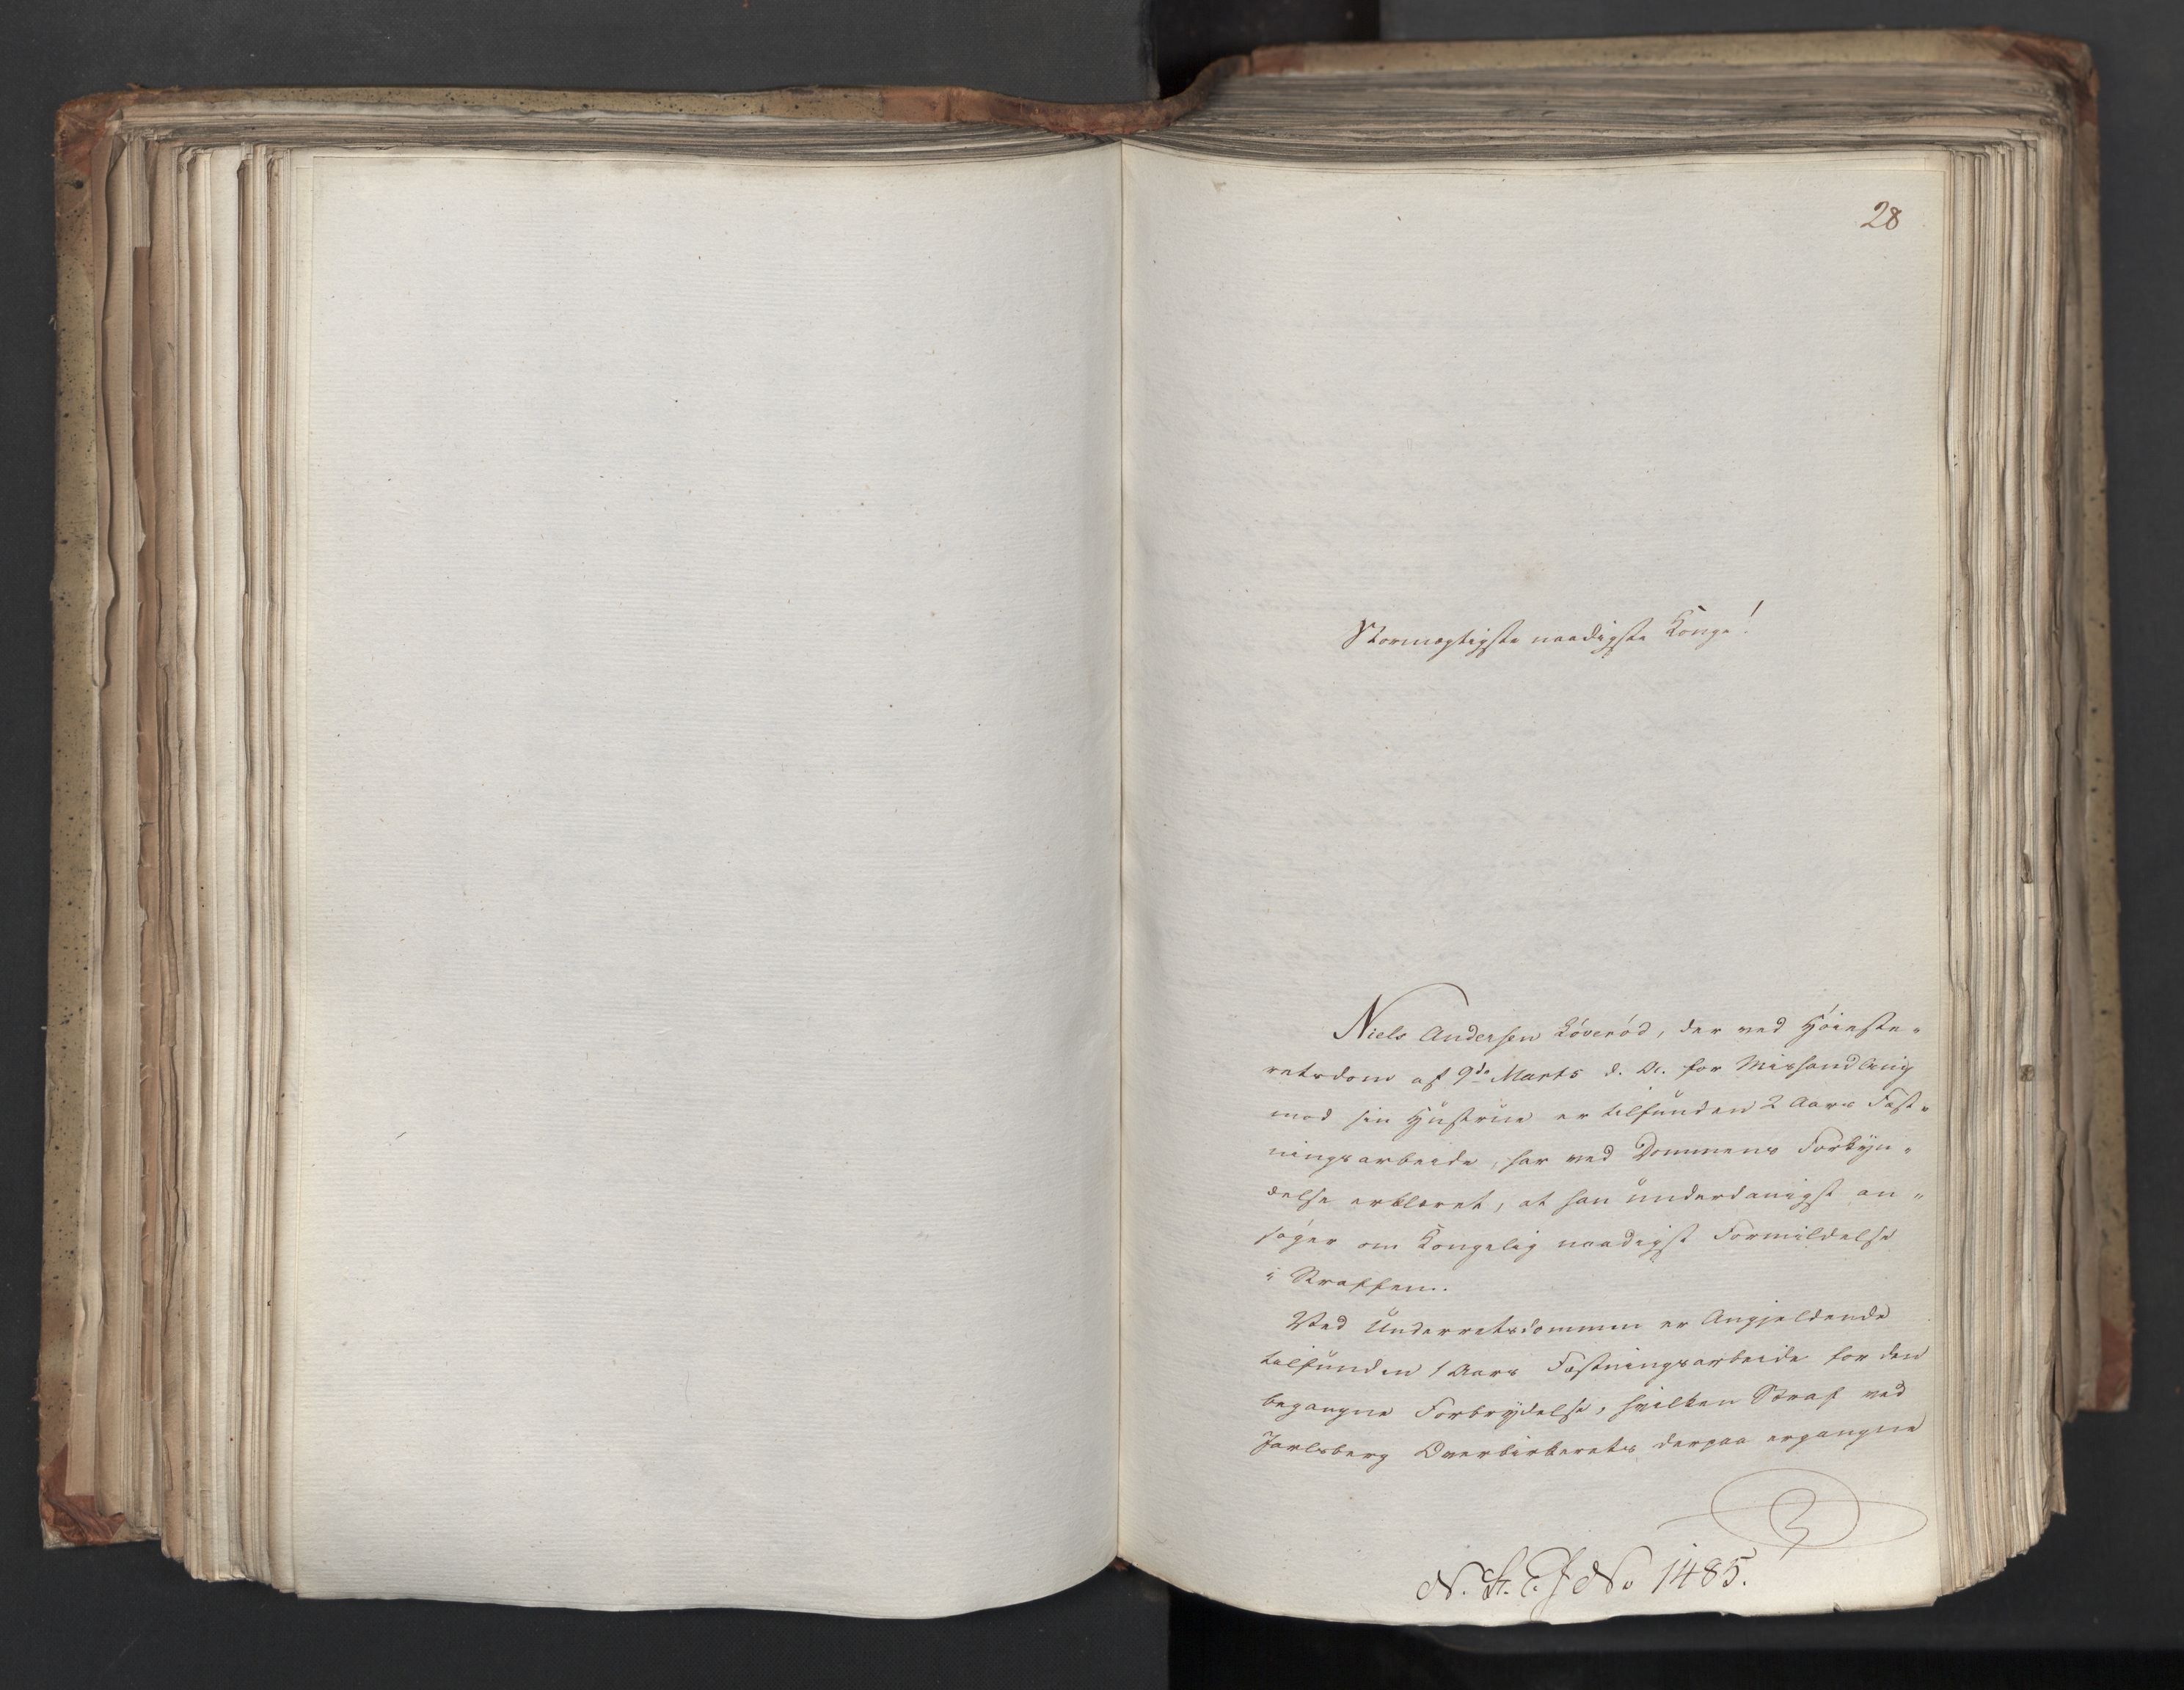 28
Stormægtigste naadigste Konge!
Niels Andersen Löveröd, der ved Höieste-
retsdom af 9de Marts d. A. for Mishandling
mod sin Hustrue er tilfunden 2 Aars Fæst-
ningsarbeide, har ved Dommens Forkyn-
delse erklæret, at han underdanigst an-
söger om Kongelig naadigst Formildelse
i Straffen.
Ved Underretsdommen er Angjeldende
tilfunden 1 Aars Fæstningsarbeide for den
begangne Forbrydelse, hvilken Straf ved
Jarlsberg Overbirkerets derpaa ergangne
N. St. E. J No 1485.